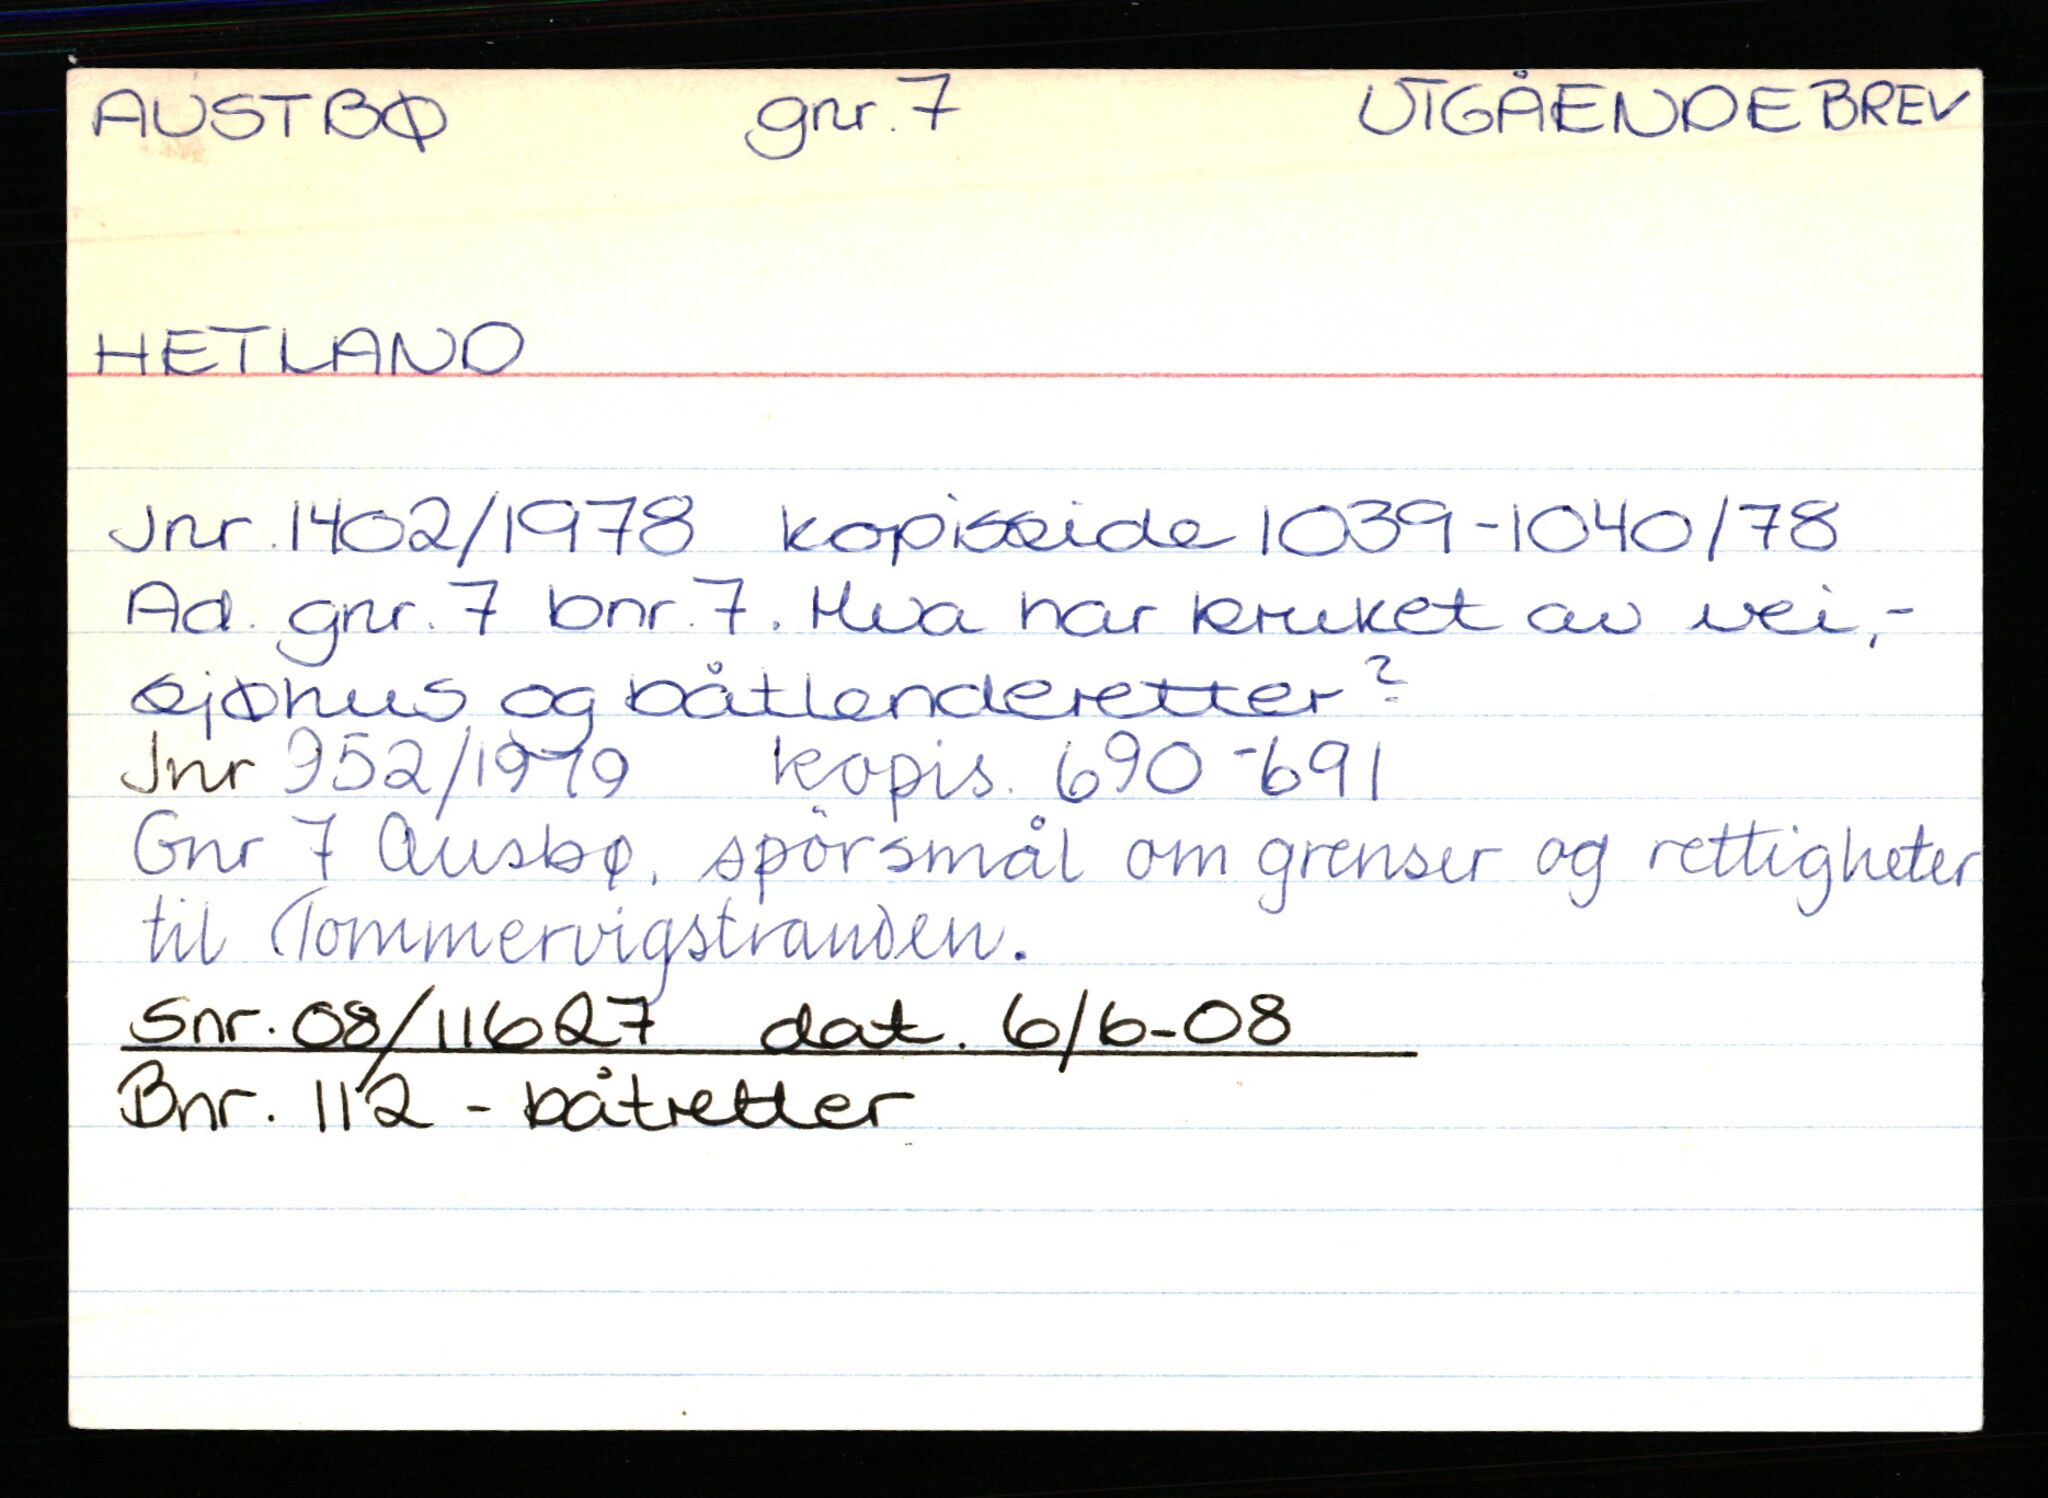 AUSTBØ gnr. 7 UTGÅENDE BREV
HETLAND
Jnr. 1402/1978 kopiside 1039-1040/78
Ad. gnr. 7 bnr. 7. Hva har bruket av vei,-
sjøhus og båtlenderetter?
Jnr 952/1979 kopis. 690-691
Gnr 7 Ausbø, spörsmål om grenser og rettigheter
til Tommervigstranden.
Snr. 08/11627 dat. 6/6-08
Bnr. 112 - båtretter